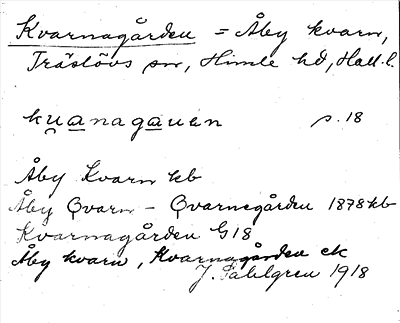 Kvarnagården = Åby kvarn,
Träslövs sn, Himle hd, Hall. l.
kuanagauen s. 18
Åby Kvarn kb
Åby Qvarn - Qvarnegården 1878 kb
Kvarnagården G18
Åby kvarn, Kvarnagården ek
J. Sahlgren 1918